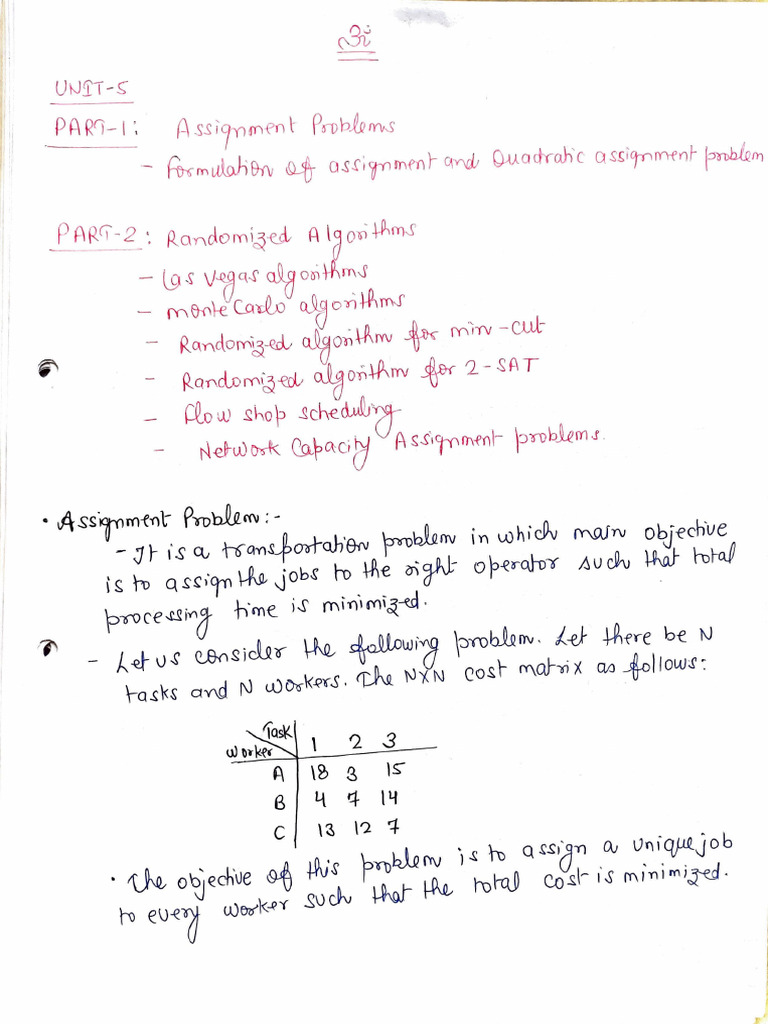 ॐ
UNIT-5
PART-1: Assignment Problems
- Formulation of assignment and Quadratic assignment problem
PART-2: Randomized Algorithms
- Las Vegas algorithms
- Monte Carlo algorithms
- Randomized algorithm for min-cut
- Randomized algorithm for 2-SAT
- Flow shop scheduling
- Network Capacity Assignment problems.
• Assignment Problem:-
- It is a transportation problem in which main objective
is to assign the jobs to the right operator such that total
processing time is minimized.
- Let us consider the following problem. Let there be N
tasks and N workers. The NXN cost matrix as follows:
Task
Worker 1 2 3
A 18 3 15
B 4 7 14
C 13 12 7
• The objective of this problem is to assign a unique job
to every worker such that the total cost is minimized.